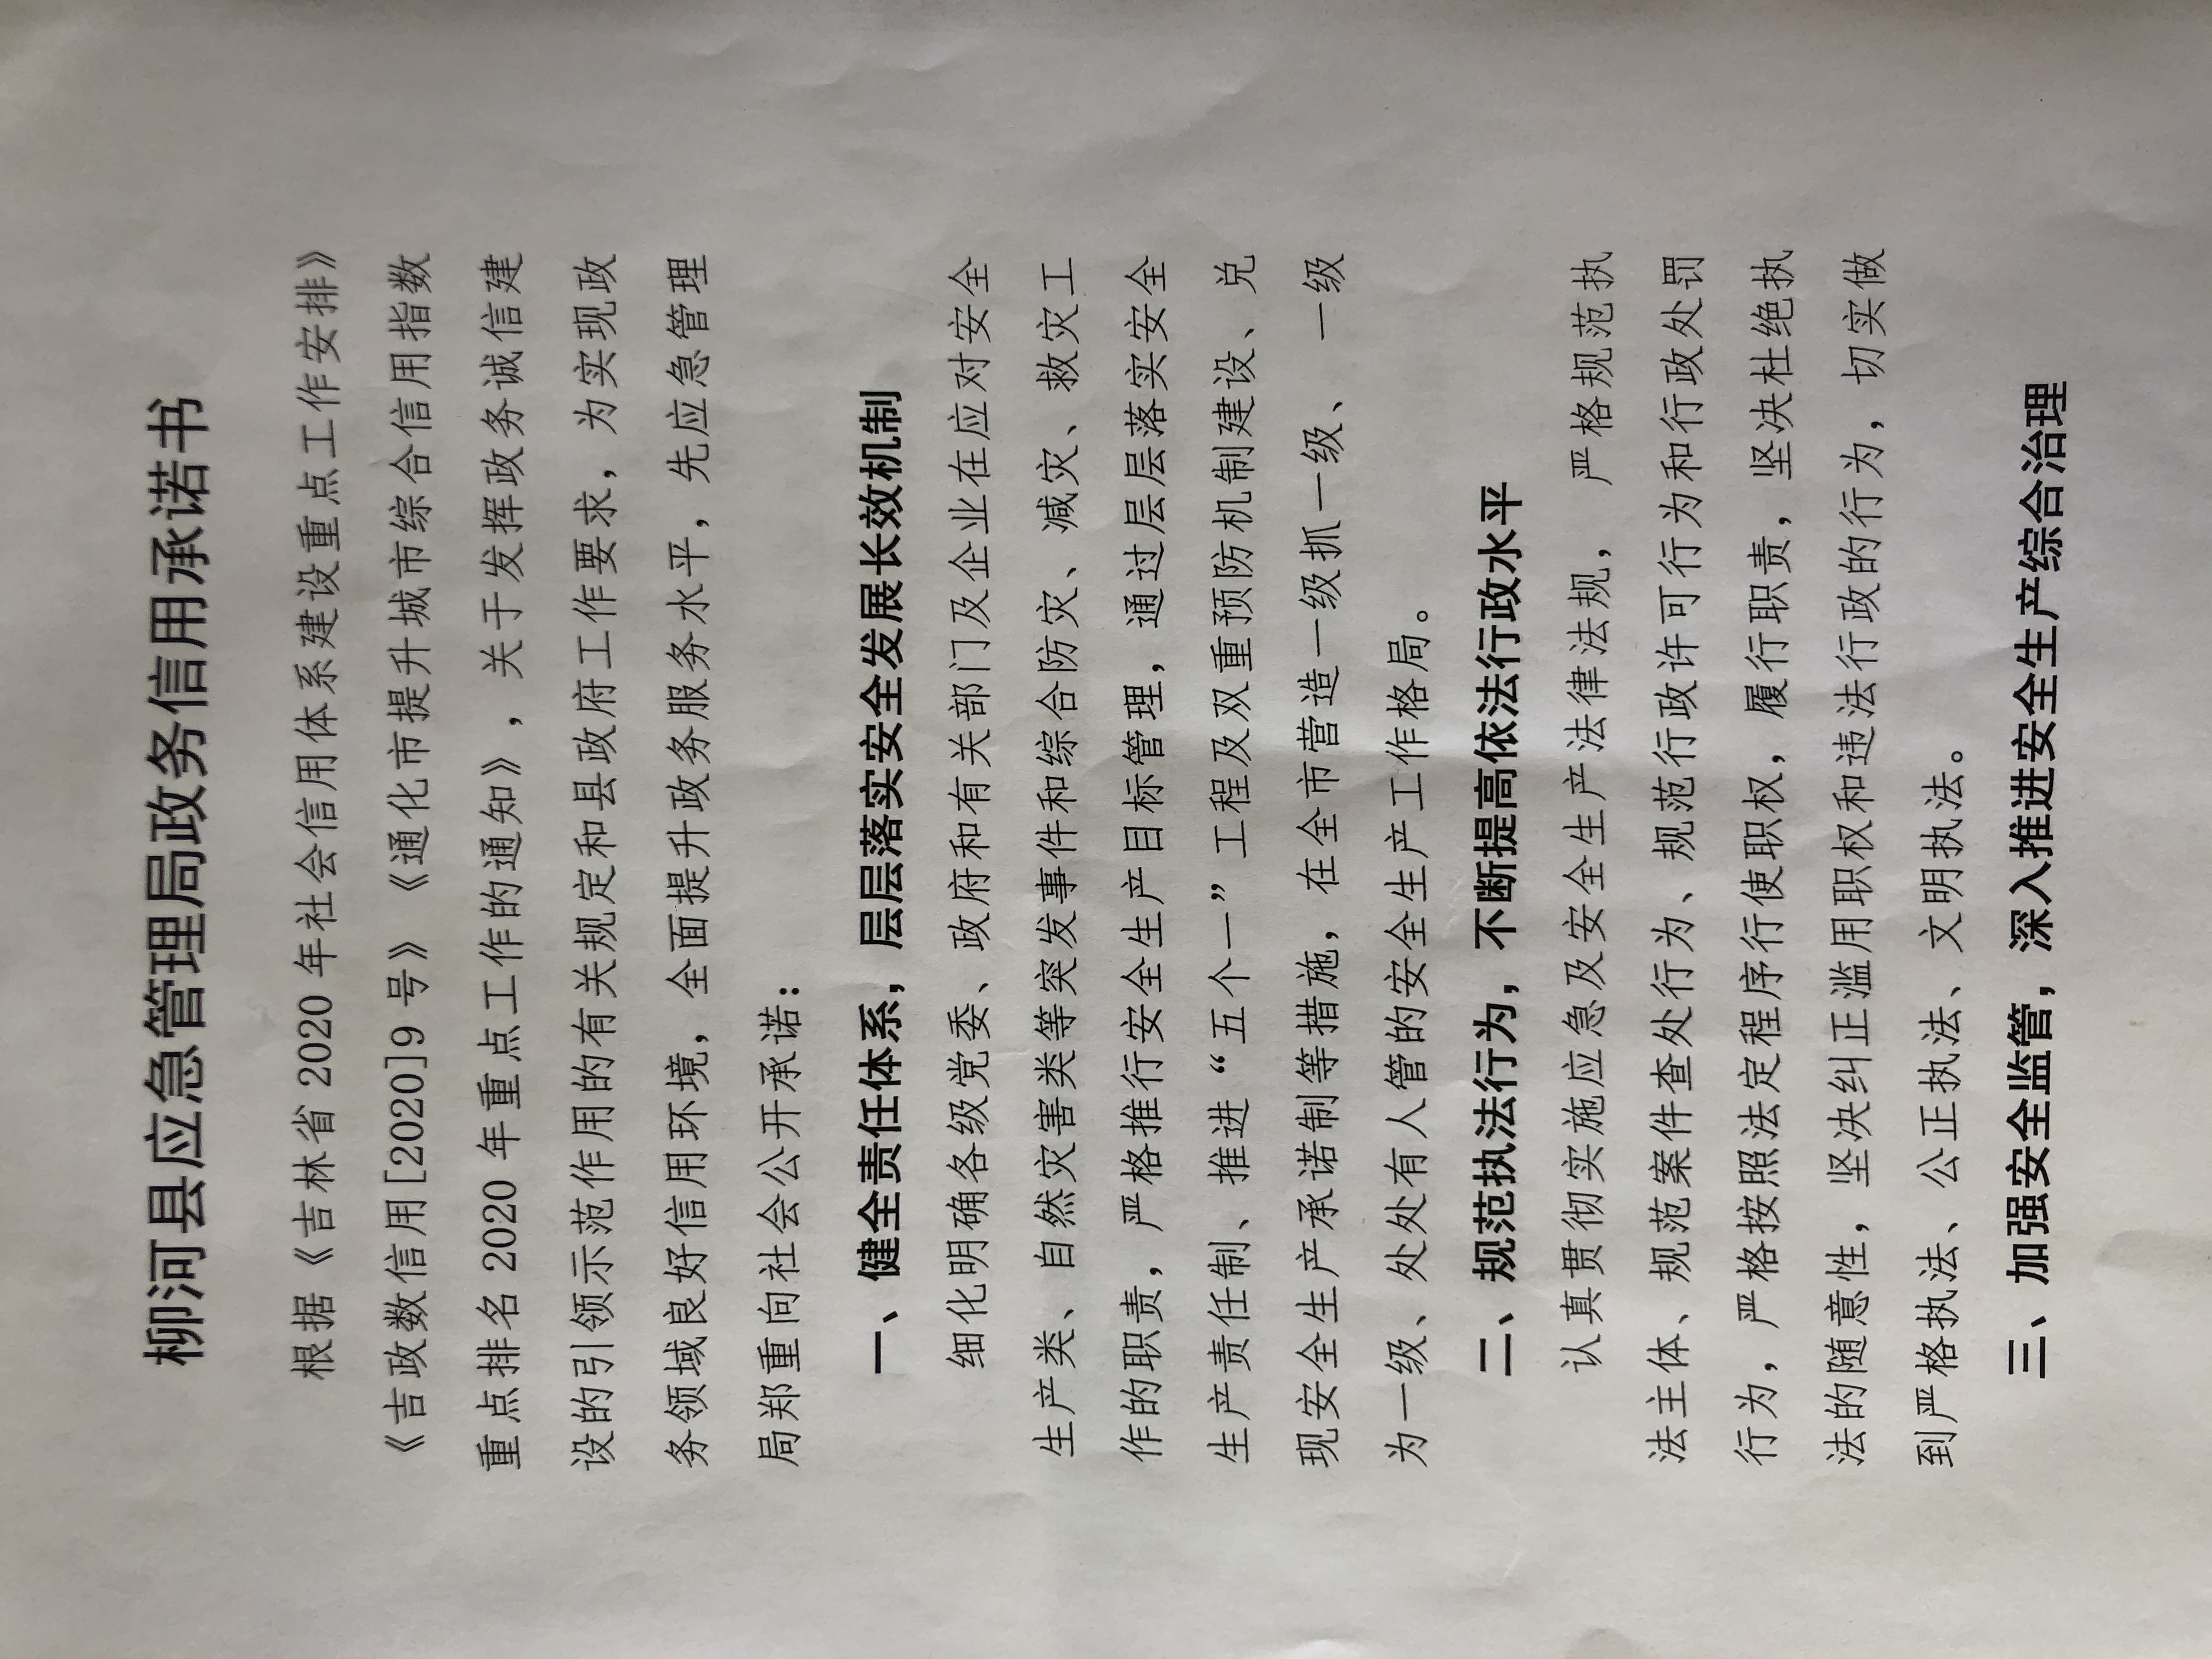 柳河县应急管理局政务信用承诺书
根据《吉林省 2020 年社会信用体系建设重点工作安排》
《吉政数信用[2020]9 号》《通化市提升城市综合信用指数
重点排名 2020 年重点工作的通知》，关于发挥政务诚信建
设的引领示范作用的有关规定和县政府工作要求，为实现政
务领域良好信用环境，全面提升政务服务水平，先应急管理
局郑重向社会公开承诺：
一、健全责任体系，层层落实安全发展长效机制
细化明确各级党委、政府和有关部门及企业在应对安全
生产类、自然灾害类等突发事件和综合防灾、减灾、救灾工
作的职责，严格推行安全生产目标管理，通过层层落实安全
生产责任制、推进“五个一”工程及双重预防机制建设、兑
现安全生产承诺制等措施，在全市营造一级抓一级、一级
为一级、处处有人管的安全生产工作格局。
二、规范执法行为，不断提高依法行政水平
认真贯彻实施应急及安全生产法律法规，严格规范执
法主体、规范案件查处行为、规范行政许可行为和行政处罚
行为，严格按照法定程序行使职权，履行职责，坚决杜绝执
法的随意性，坚决纠正滥用职权和违法行政的行为，切实做
到严格执法、公正执法、文明执法。
三、加强安全监管，深入推进安全生产综合治理